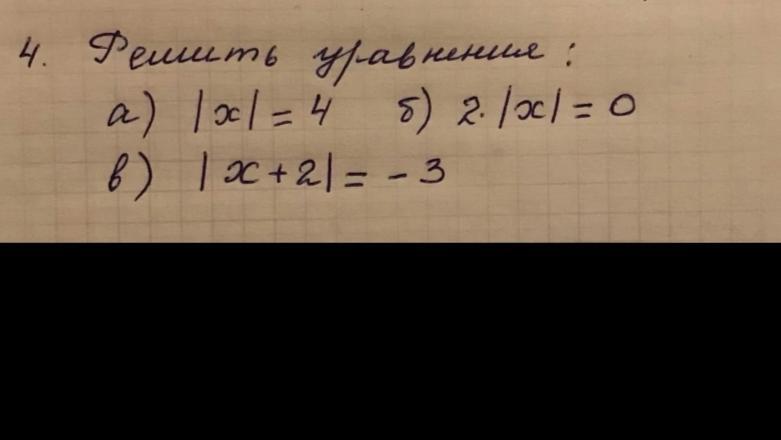 4. Решить уравнения:
а) |x| = 4 б) 2·|x| = 0
в) |x+2| = -3